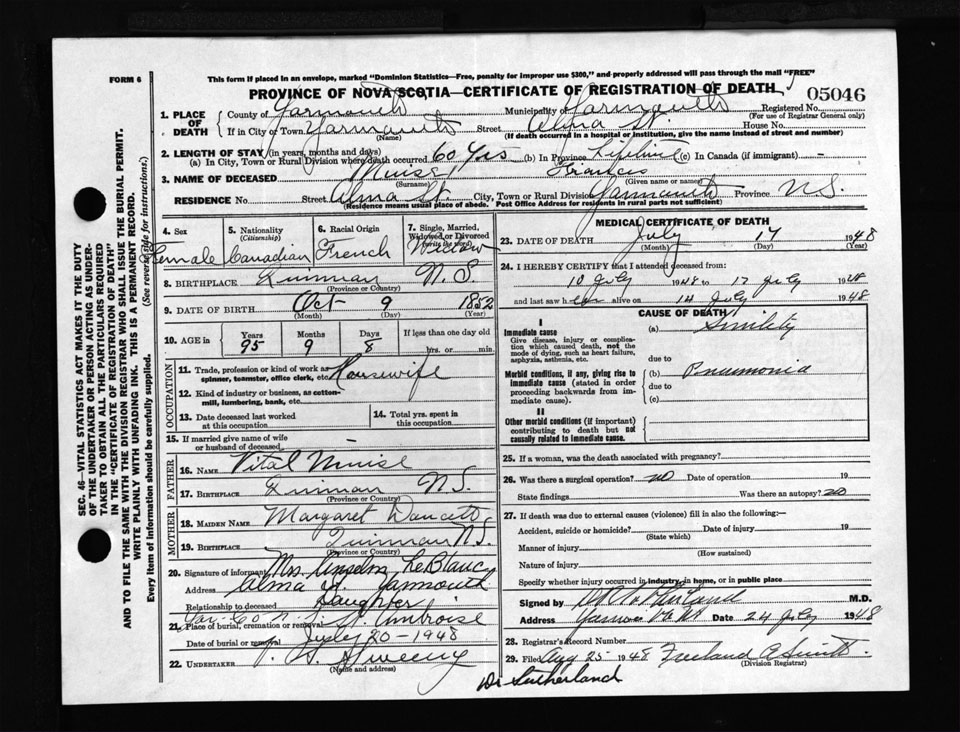 FORM 6
This form if placed in an envelope, marked "Dominion Statistics—Free, penalty for improper use $300," and properly addressed will pass through the mail "FREE"
PROVINCE OF NOVA SCOTIA—CERTIFICATE OF REGISTRATION OF DEATH
05046
1. PLACE OF DEATH
County of Yarmouth Municipality of Yarmouth Registered No.
(For use of Registrar General only)
If in City or Town Yarmouth Street Alma St House No.
(If death occurred in a hospital or institution, give its name instead of street and number)
2. LENGTH OF STAY (in years, months and days)
(a) In City, Town or Rural Division where death occurred 60 Yrs (b) In Province Lifetime (c) In Canada (if immigrant) —
3. NAME OF DECEASED Muise Francis
(Surname) (Given name or names)
RESIDENCE No. Street Alma St. City, Town or Rural Division Yarmouth — Province N.S.
(Residence means usual place of abode. Post Office Address for residents in rural parts not sufficient)
4. Sex Female
5. Nationality (Citizenship) Canadian
6. Racial Origin French
7. Single, Married, Widowed or Divorced (write the word) Widow
8. BIRTHPLACE Quinan N.S.
(Province or Country)
9. DATE OF BIRTH Oct 9 1852
(Month) (Day) (Year)
10. AGE in Years 95 Months 9 Days 8 If less than one day old hrs. or min.
OCCUPATION
11. Trade, profession or kind of work as spinner, teamster, office clerk, etc. Housewife
12. Kind of industry or business, as cotton-mill, lumbering, bank, etc.
13. Date deceased last worked at this occupation
14. Total yrs. spent in this occupation
15. If married give name of wife or husband of deceased —
FATHER
16. NAME Vital Muise
17. BIRTHPLACE Quinan N.S.
(Province or Country)
MOTHER
18. MAIDEN NAME Margaret Doucette
19. BIRTHPLACE Quinan N.S.
(Province or Country)
20. Signature of informant Mrs. Anselm LeBlanc
Address Alma St Yarmouth
Relationship to deceased Daughter
21. Place of burial, cremation or removal Yar. Co. St. Ambroise
Date of burial or removal July 20 - 1948
22. UNDERTAKER Sweeny
(Name and address)
MEDICAL CERTIFICATE OF DEATH
23. DATE OF DEATH July 17 1948
(Month) (Day) (Year)
24. I HEREBY CERTIFY that I attended deceased from:
10 July 1948 to 17 July 1948
and last saw her alive on 14 July 1948
CAUSE OF DEATH
I
Immediate cause
Give disease, injury or complication which caused death, not the mode of dying, such as heart failure, asphyxia, asthenia, etc.
(a) Senility
due to
Morbid conditions, if any, giving rise to immediate cause (stated in order proceeding backwards from immediate cause).
(b) Pneumonia
due to
(c)
II
Other morbid conditions (if important) contributing to death but not causally related to immediate cause.
25. If a woman, was the death associated with pregnancy?
26. Was there a surgical operation? no Date of operation 19
State findings Was there an autopsy? no
27. If death was due to external causes (violence) fill in also the following:—
Accident, suicide or homicide? Date of injury 19
(State which)
Manner of injury
(How sustained)
Nature of injury
Specify whether injury occurred in industry, in home, or in public place
Signed by Sutherland M.D.
Address Yarmouth NS Date 24 July 1948
28. Registrar's Record Number
29. Filed Aug 25 1948 Freeland A. Smith
(Division Registrar)
Dr Sutherland
SEC. 46—VITAL STATISTICS ACT MAKES IT THE DUTY
OF THE UNDERTAKER OR PERSON ACTING AS UNDER-
TAKER TO OBTAIN ALL THE PARTICULARS REQUIRED
IN THE "CERTIFICATE OF REGISTRATION OF DEATH"
AND TO FILE THE SAME WITH THE DIVISION REGISTRAR WHO SHALL ISSUE THE BURIAL PERMIT.
WRITE PLAINLY WITH UNFADING INK. THIS IS A PERMANENT RECORD.
Every item of information should be carefully supplied. (See reverse side for instructions.)